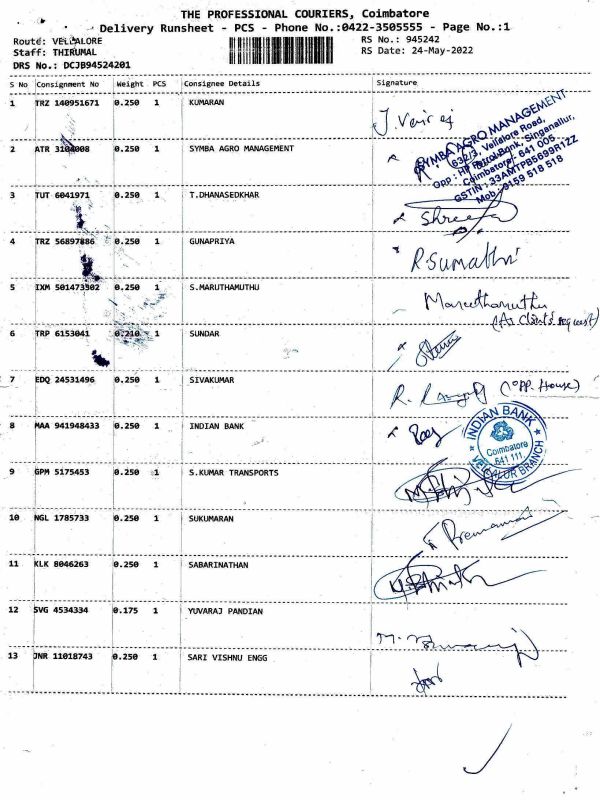 THE PROFESSIONAL COURIERS, Coimbatore
Delivery Runsheet - PCS - Phone No.:0422-3505555 - Page No.:1
Route: VELLALORE
RS No.: 945242
Staff: THIRUMAL
RS Date: 24-May-2022
DRS No.: DCJB94524201
S No Consignment No Weight PCS Consignee Details Signature
1 TRZ 140951671 0.250 1 KUMARAN
2 ATR 3104008 0.250 1 SYMBA AGRO MANAGEMENT
SYMBA AGRO MANAGEMENT
632/3, Vellalore Road,
Opp : HP Petrol Bunk, Singanallur,
Coimbatore - 641 005.
GSTIN : 33AMTPB5699R1ZZ
Mob : 9159 518 518
3 TUT 6041971 0.250 1 T.DHANASEDKHAR
4 TRZ 56897886 0.250 1 GUNAPRIYA R.Sumathi
5 IXM 501473302 0.250 1 S.MARUTHAMUTHU Maruthamuthu
(As Client's request)
6 TRP 6153041 0.210 1 SUNDAR
7 EDQ 24531496 0.250 1 SIVAKUMAR (opp. House)
8 MAA 941948433 0.250 1 INDIAN BANK
INDIAN BANK
Coimbatore
641 111.
VELLALUR BRANCH
9 GPM 5175453 0.250 1 S.KUMAR TRANSPORTS
10 NGL 1785733 0.250 1 SUKUMARAN
11 KLK 8046263 0.250 1 SABARINATHAN
12 SVG 4534334 0.175 1 YUVARAJ PANDIAN
13 JNR 11018743 0.250 1 SARI VISHNU ENGG